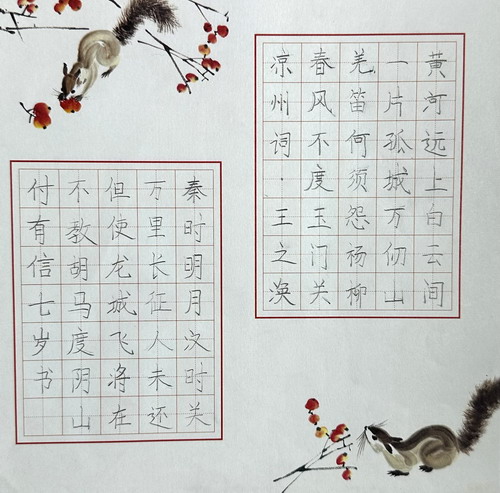 黄河远上白云间
一片孤城万仞山
羌笛何须怨杨柳
春风不度玉门关
凉州词·王之涣
秦时明月汉时关
万里长征人未还
但使龙城飞将在
不教胡马度阴山
付有信七岁书